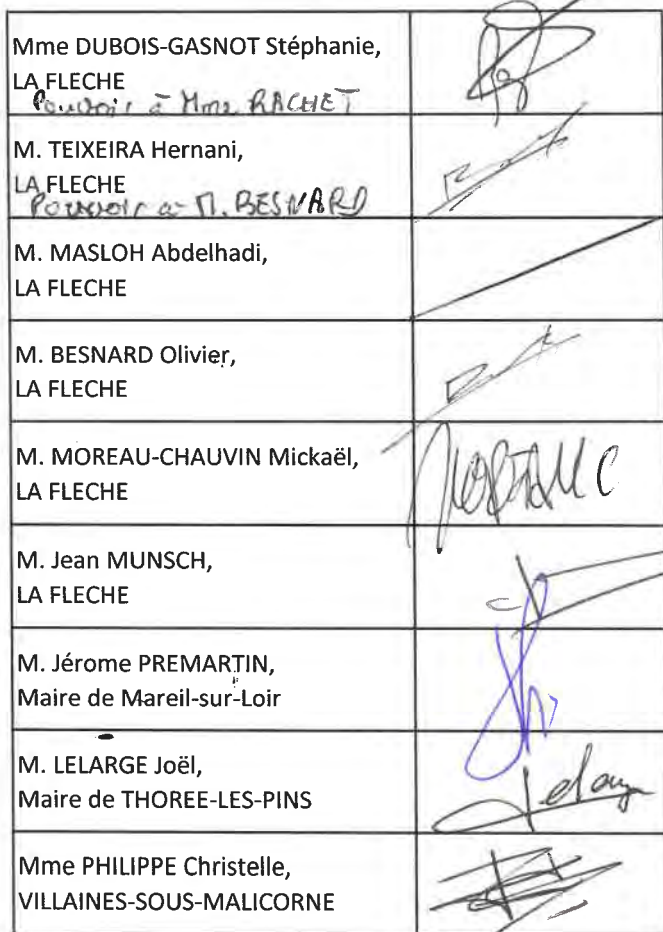 Mme DUBOIS-GASNOT Stéphanie,
LA FLECHE
Pouvoir à Mme RACHET
M. TEIXEIRA Hernani,
LA FLECHE
Pouvoir a M. BESNARD
M. MASLOH Abdelhadi,
LA FLECHE
M. BESNARD Olivier,
LA FLECHE
M. MOREAU-CHAUVIN Mickaël,
LA FLECHE
M. Jean MUNSCH,
LA FLECHE
M. Jérome PREMARTIN,
Maire de Mareil-sur-Loir
M. LELARGE Joël,
Maire de THOREE-LES-PINS
Lelarge
Mme PHILIPPE Christelle,
VILLAINES-SOUS-MALICORNE